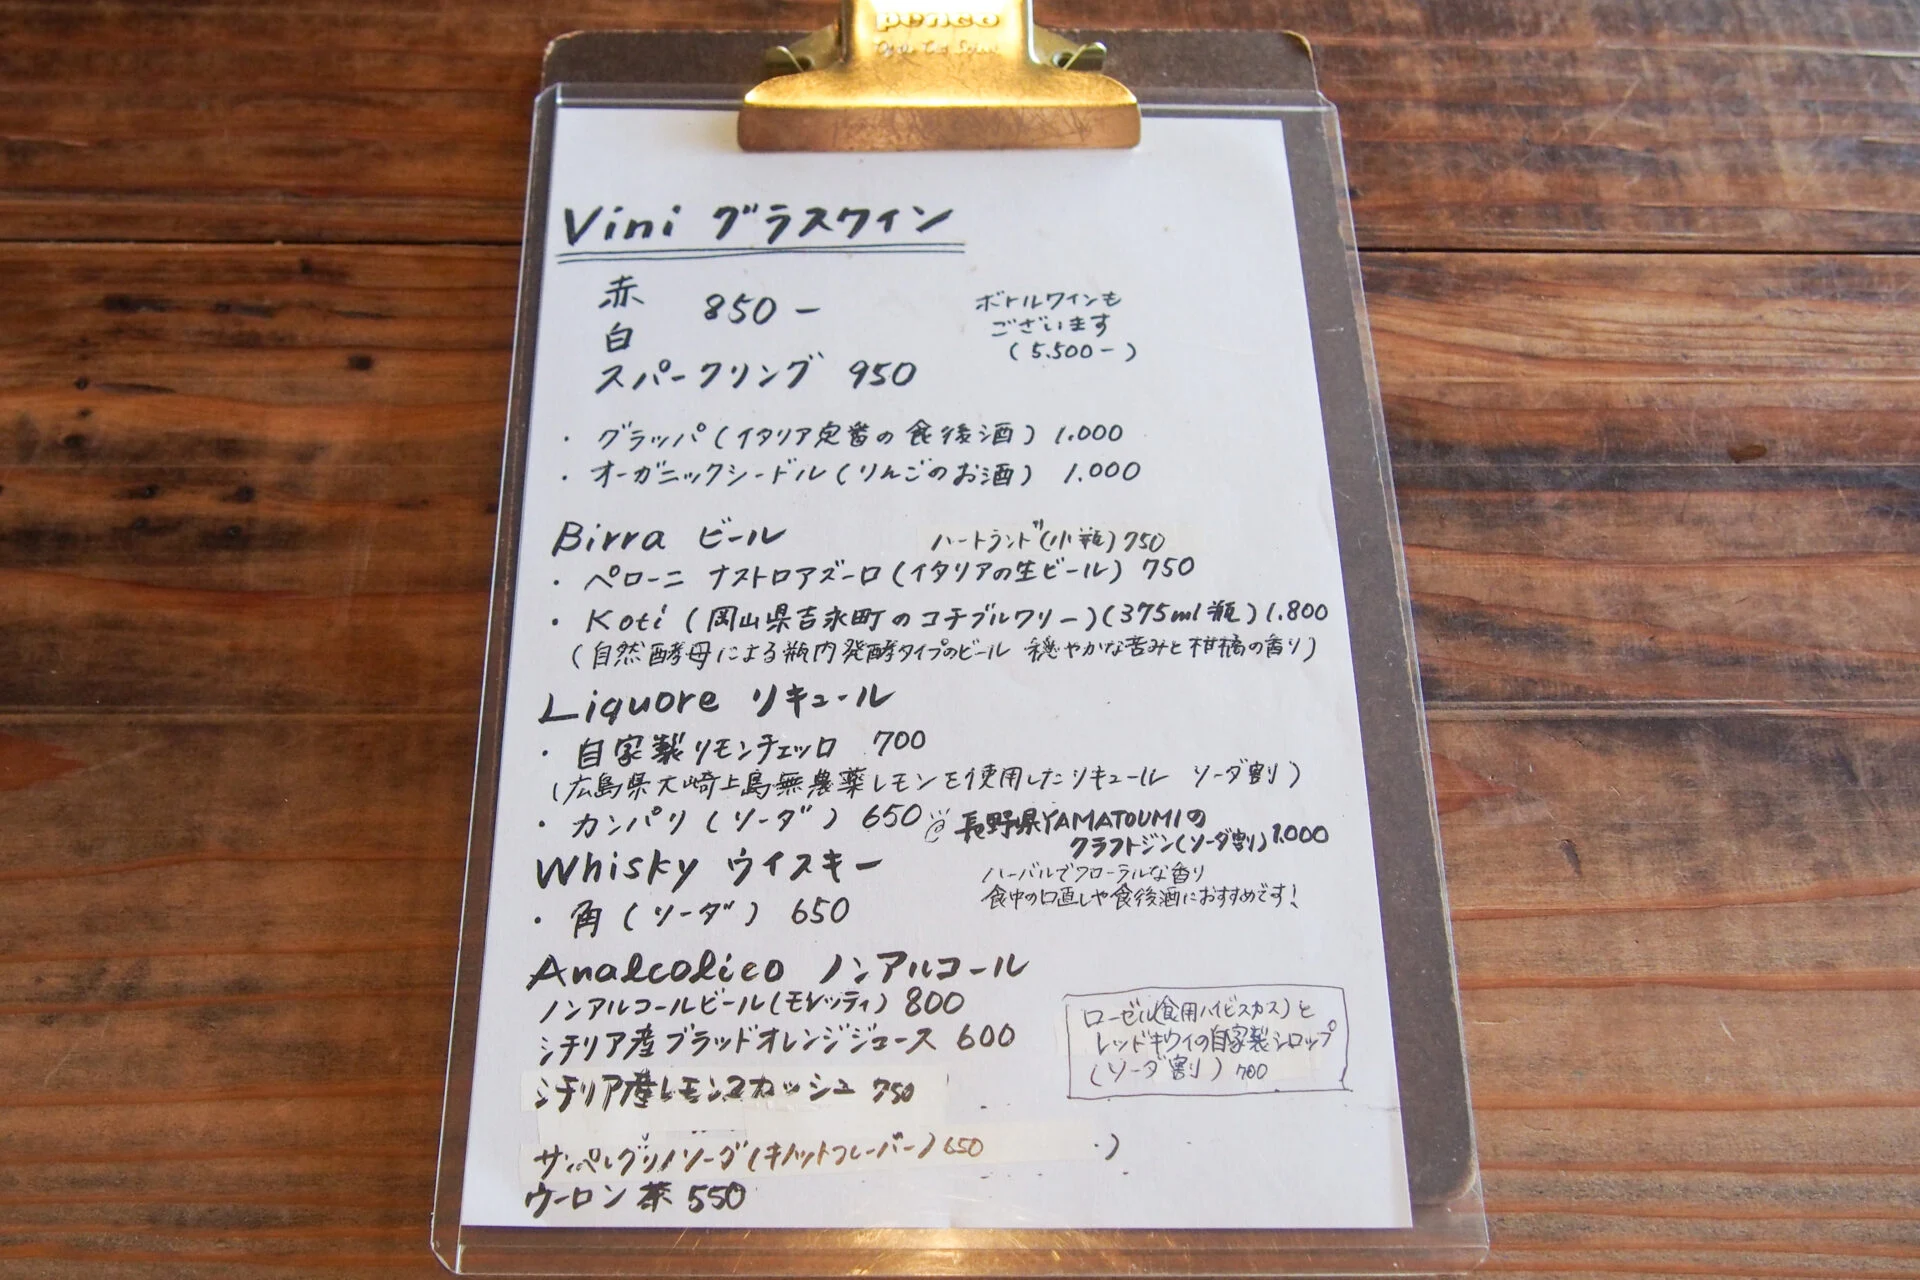 penco
Vini グラスワイン
赤
850-
白
スパークリング 950
ボトルワインも
ございます
(5.500-)
・グラッパ(イタリア定番の食後酒) 1.000
・オーガニックシードル(りんごのお酒) 1.000
Birra ビール
ハートランド(小瓶) 750
・ペローニ ナストロアズーロ(イタリアの生ビール) 750
・Koti (岡山県吉永町のコチブルワリー)(375ml瓶) 1.800
(自然酵母による瓶内発酵タイプのビール 穏やかな苦みと柑橘の香り)
Liquore リキュール
・自家製リモンチェッロ 700
(広島県大崎上島無農薬レモンを使用したリキュール ソーダ割)
・カンパリ(ソーダ) 650
長野県YAMATOUMIの
クラフトジン(ソーダ割) 1.000
ハーバルでフローラルな香り
食中の口直しや食後酒におすすめです!
Whisky ウイスキー
・角(ソーダ) 650
Analcolico ノンアルコール
ノンアルコールビール(モレッティ) 800
シチリア産ブラッドオレンジジュース 600
シチリア産レモンスカッシュ 750
ローゼル(食用ハイビスカス)と
レッドキウイの自家製シロップ
(ソーダ割) 700
サンペレグリノソーダ(キノットフレーバー) 650
ウーロン茶 550